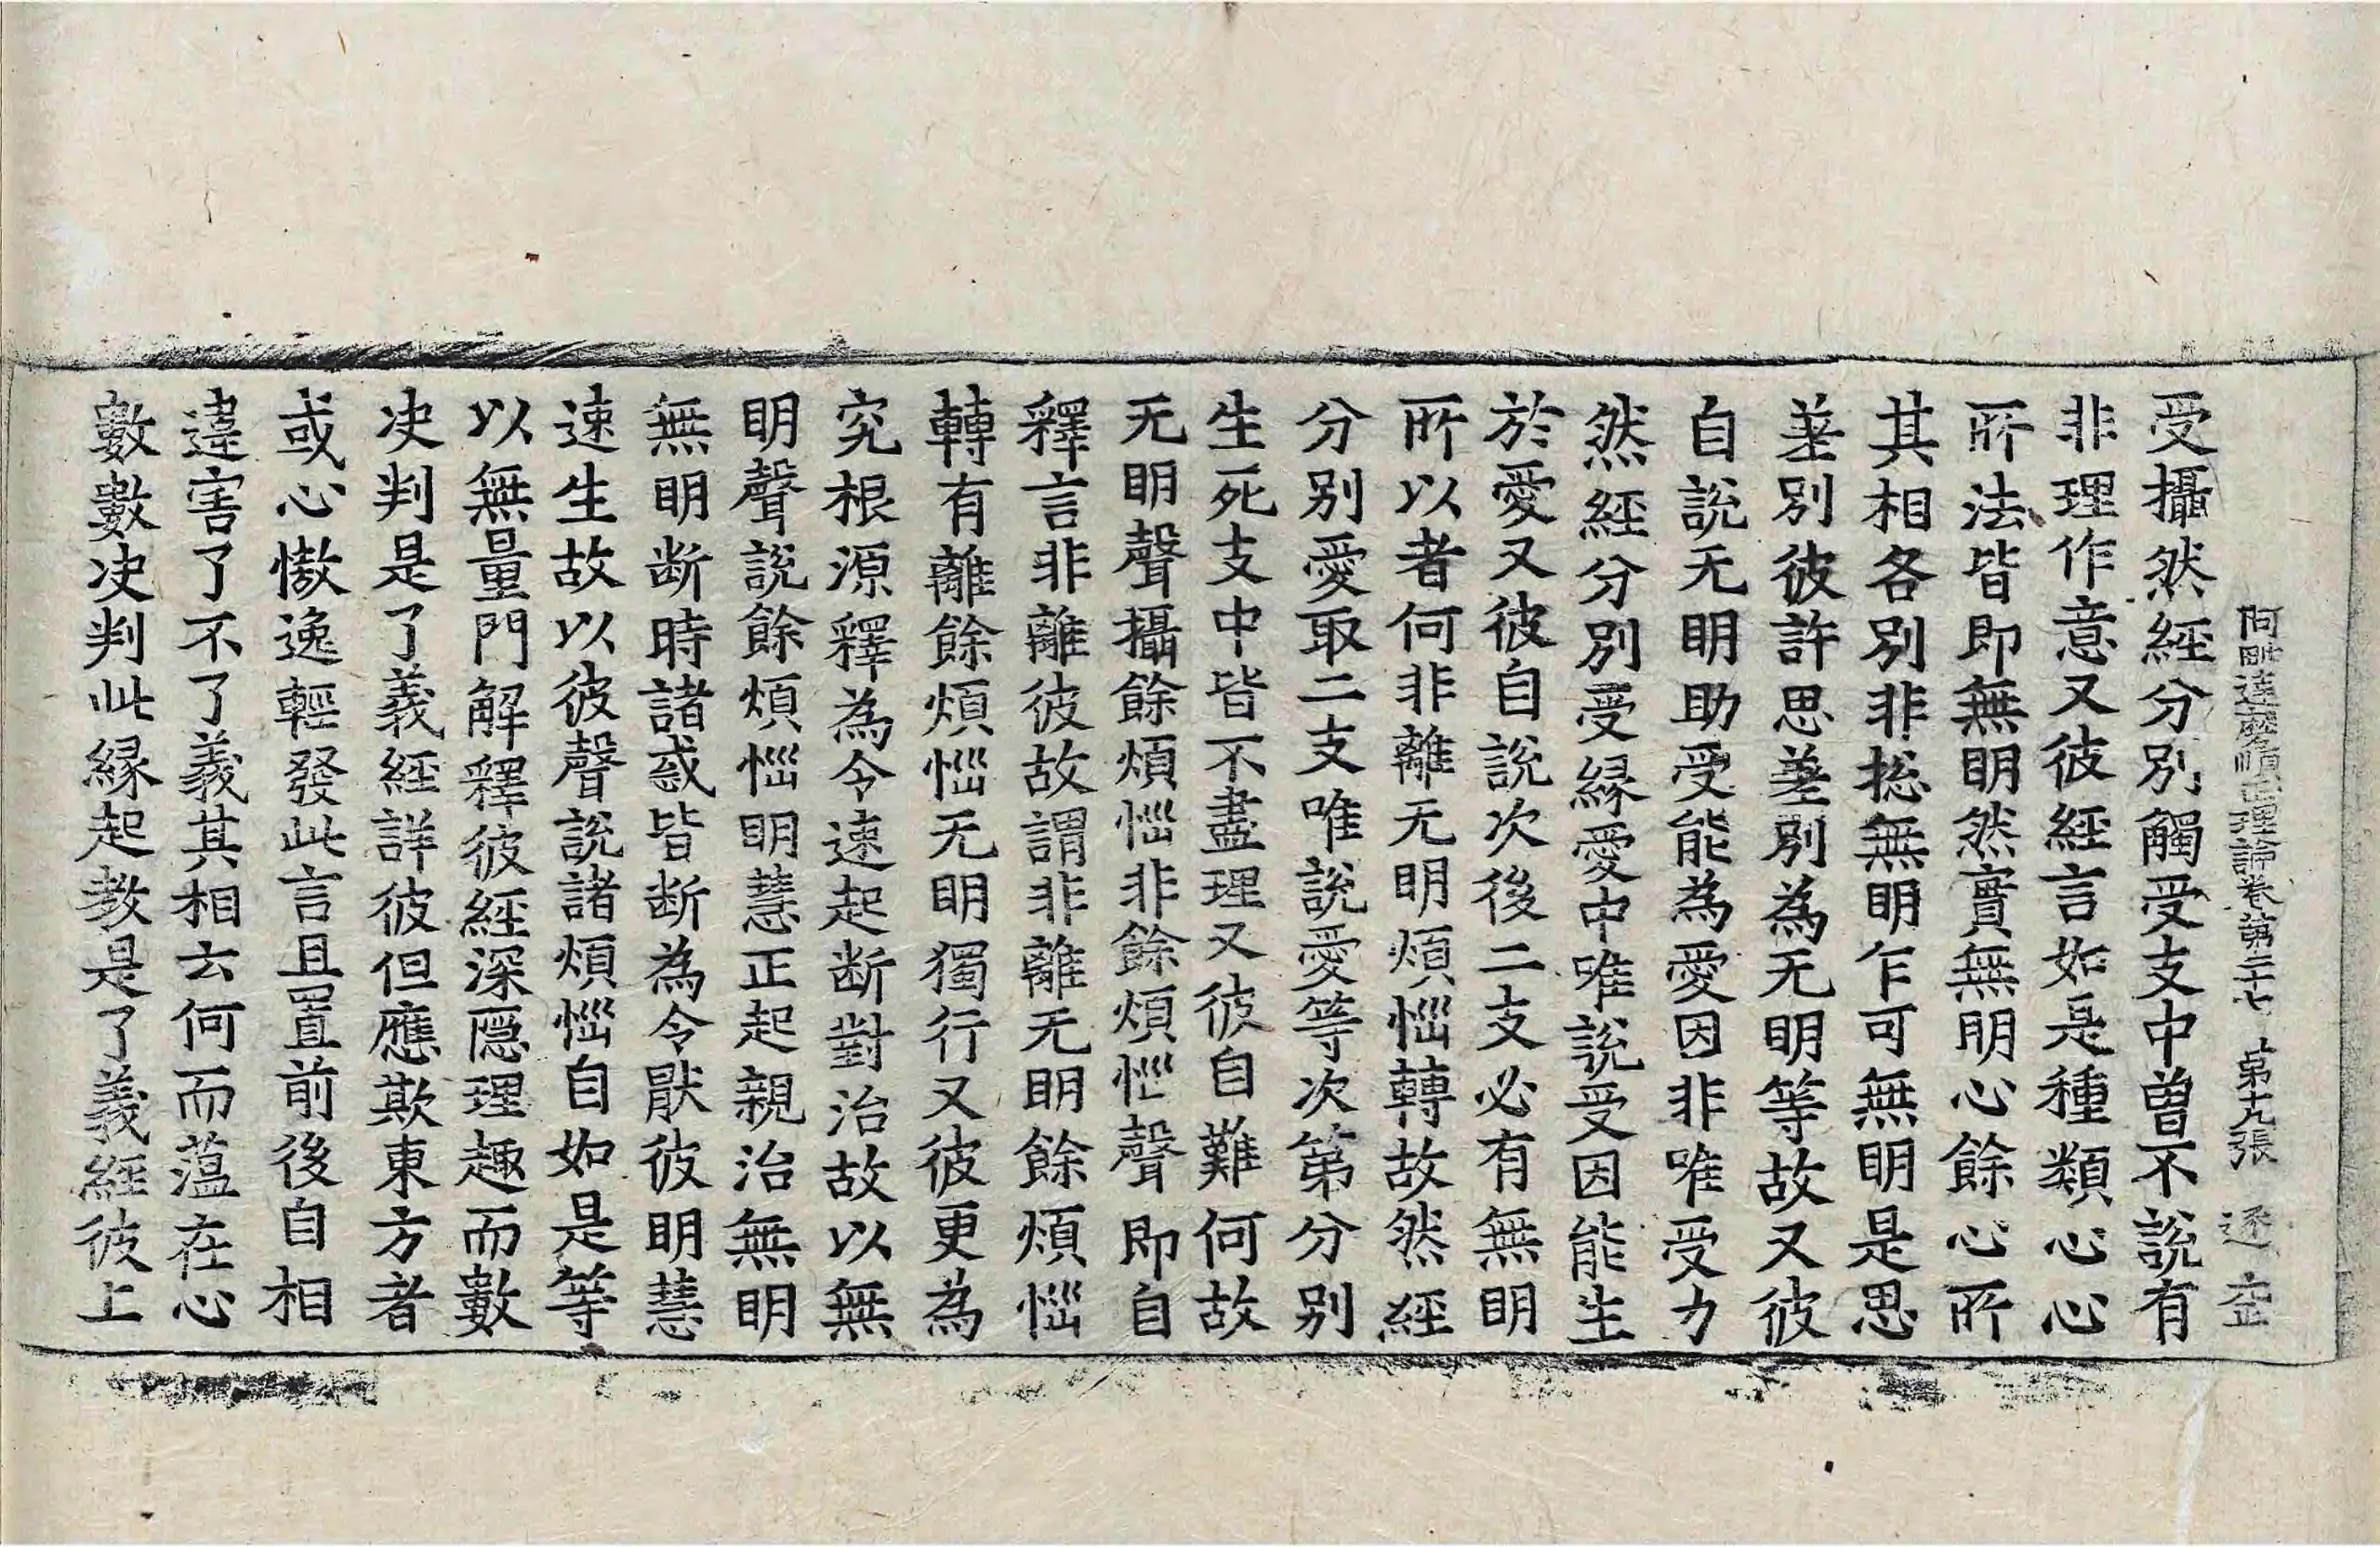 阿毗達磨順正理論卷第二十七 第十九張 逐
受攝然經分別觸受支中曾不說有
非理作意又彼經言如是種類心心
所法皆即無明然實無明心餘心所
其相各別非捴無明乍可無明是思
差別彼許思差別為无明等故又彼
自說无明助受能為愛因非唯受力
然經分別受緣愛中唯說受因能生
於愛又彼自說次後二支必有無明
所以者何非離无明煩惱轉故然經
分別愛取二支唯說愛等次第分別
生死支中皆不盡理又彼自難何故
无明聲攝餘煩惱非餘煩惱聲即自
釋言非離彼故謂非離无明餘煩惱
轉有離餘煩惱无明獨行又彼更為
究根源釋為令速起断對治故以無
明聲說餘煩惱明慧正起親治無明
無明断時諸惑皆断為令猒彼明慧
速生故以彼聲說諸煩惱自如是等
以無量門解釋彼經深隱理趣而數
决判是了義經詳彼但應欺東方者
或心慠逸輕發此言且置前後自相
違害了不了義其相云何而薀在心
數數决判此緣起教是了義經彼上